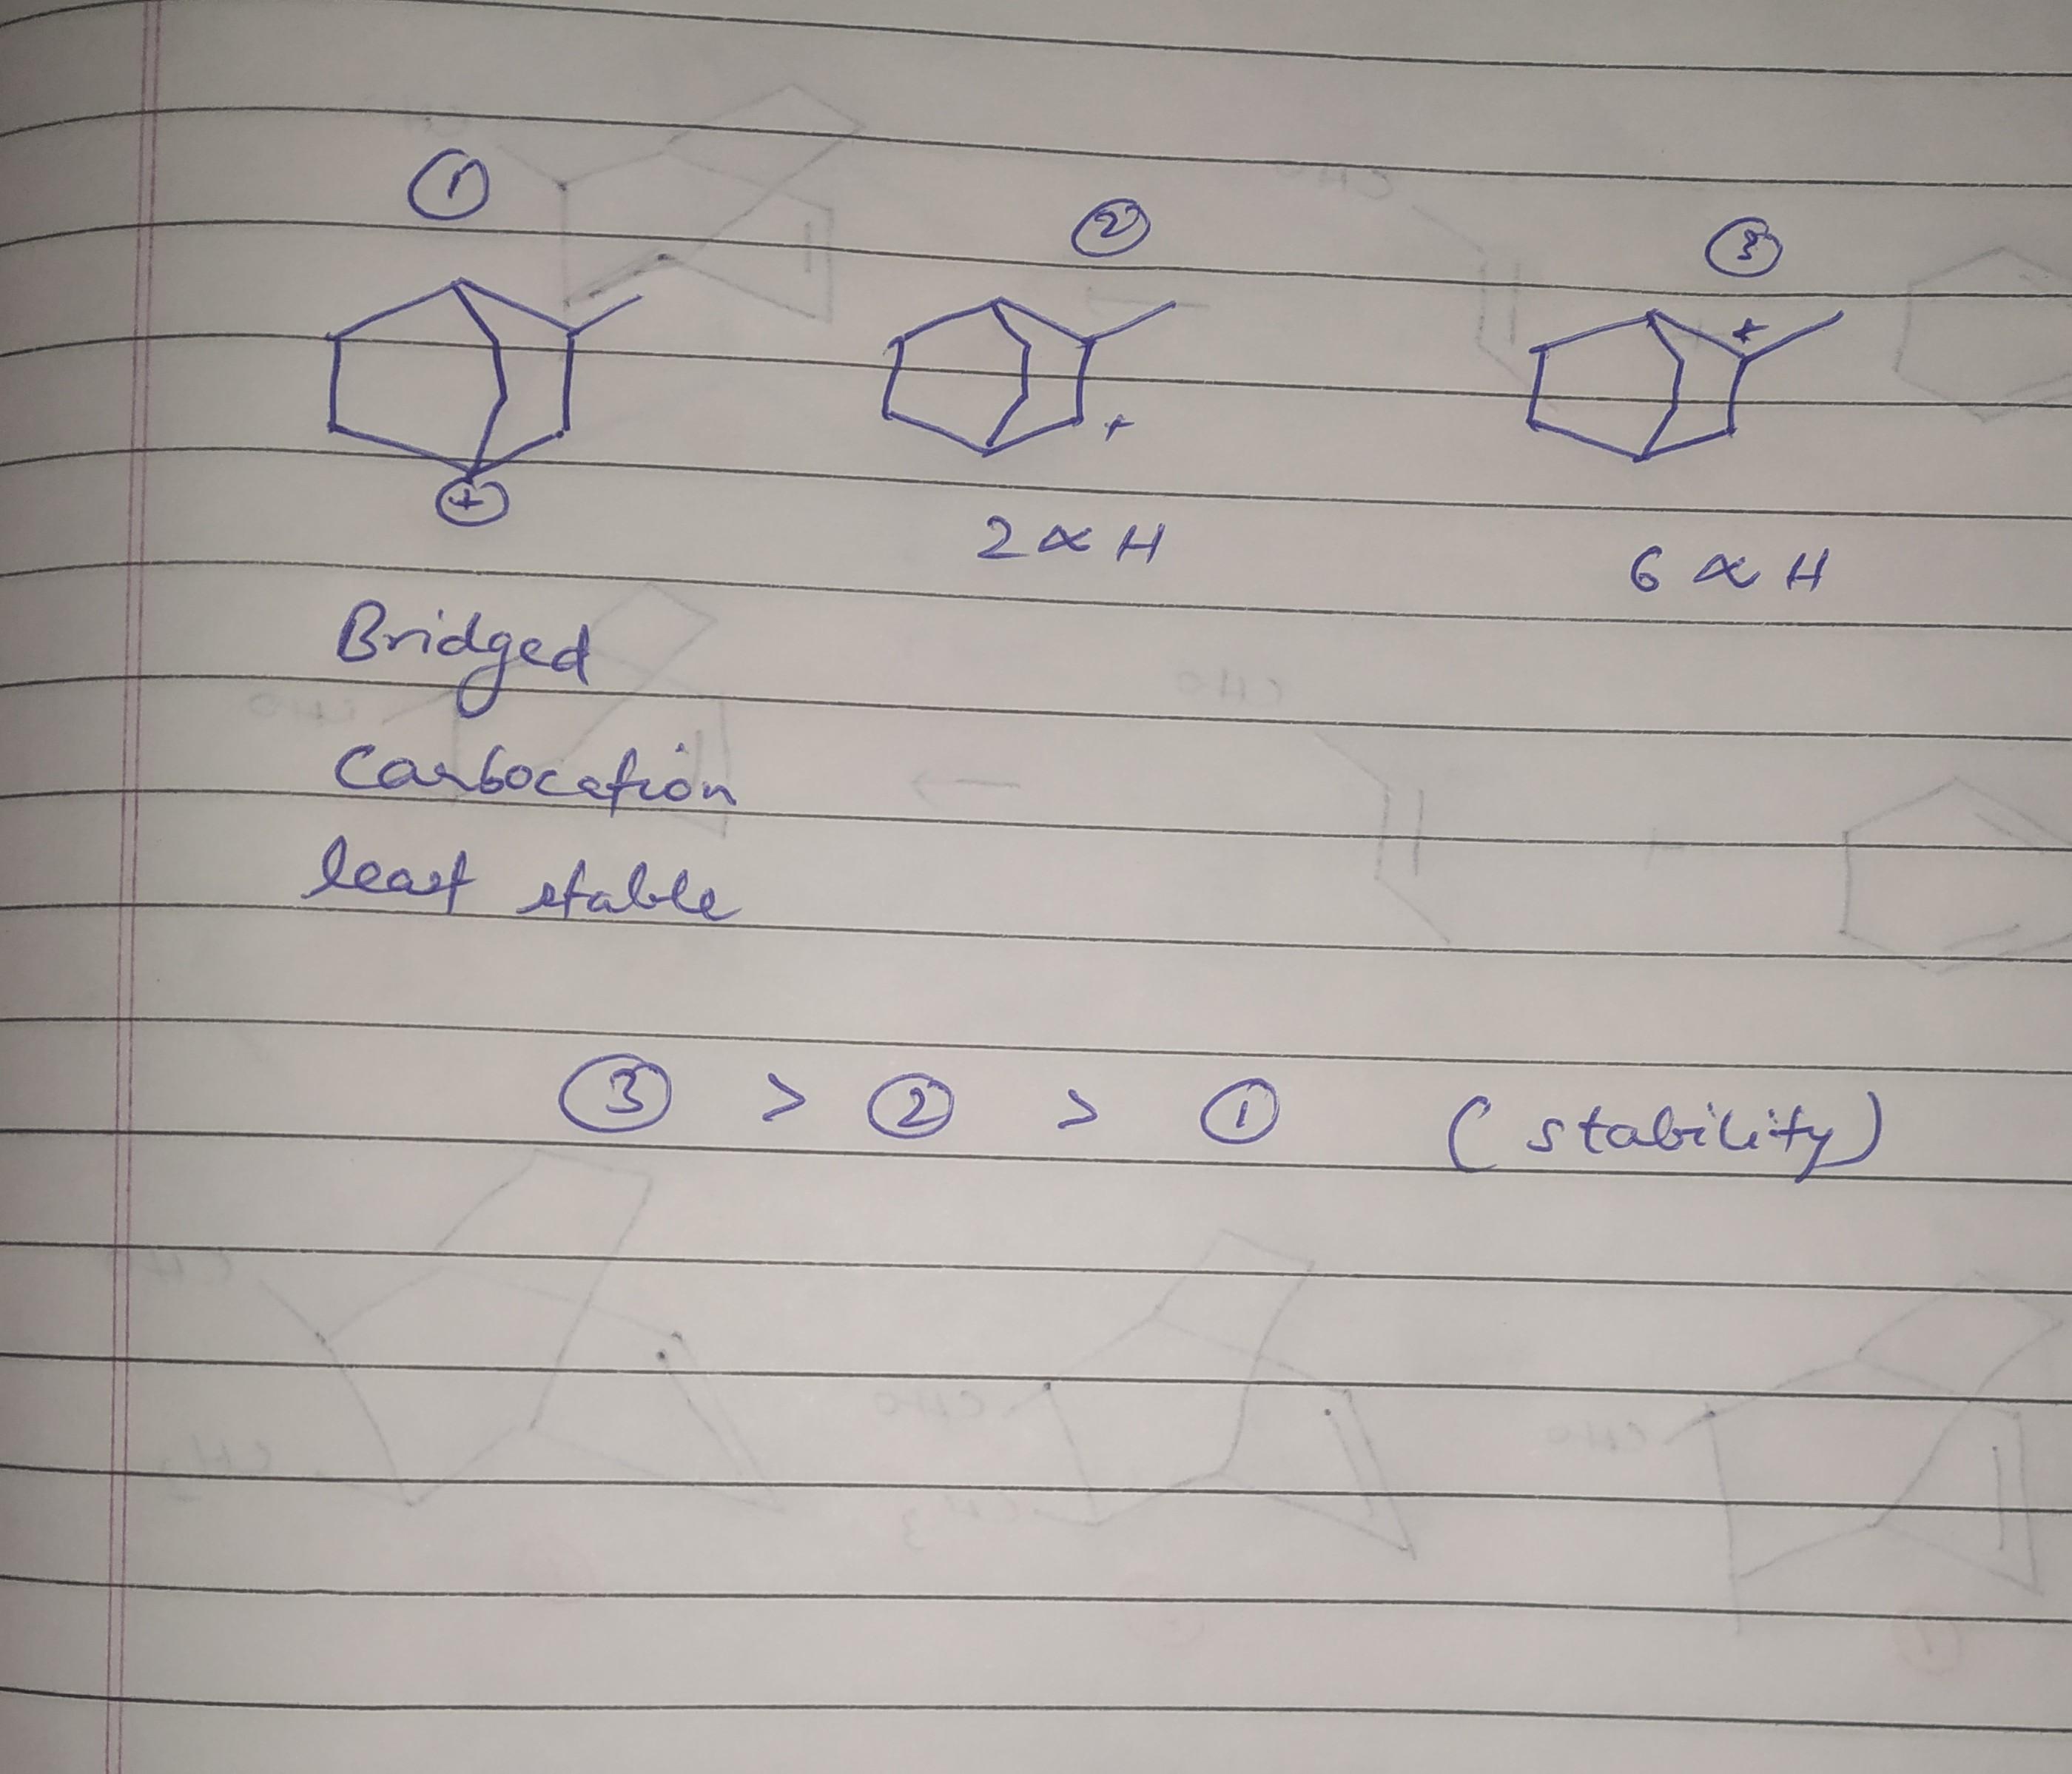 ① ② ③
+ + +
2 α H 6 α H
Bridged
Carbocation
least stable
③ > ② > ① (stability)